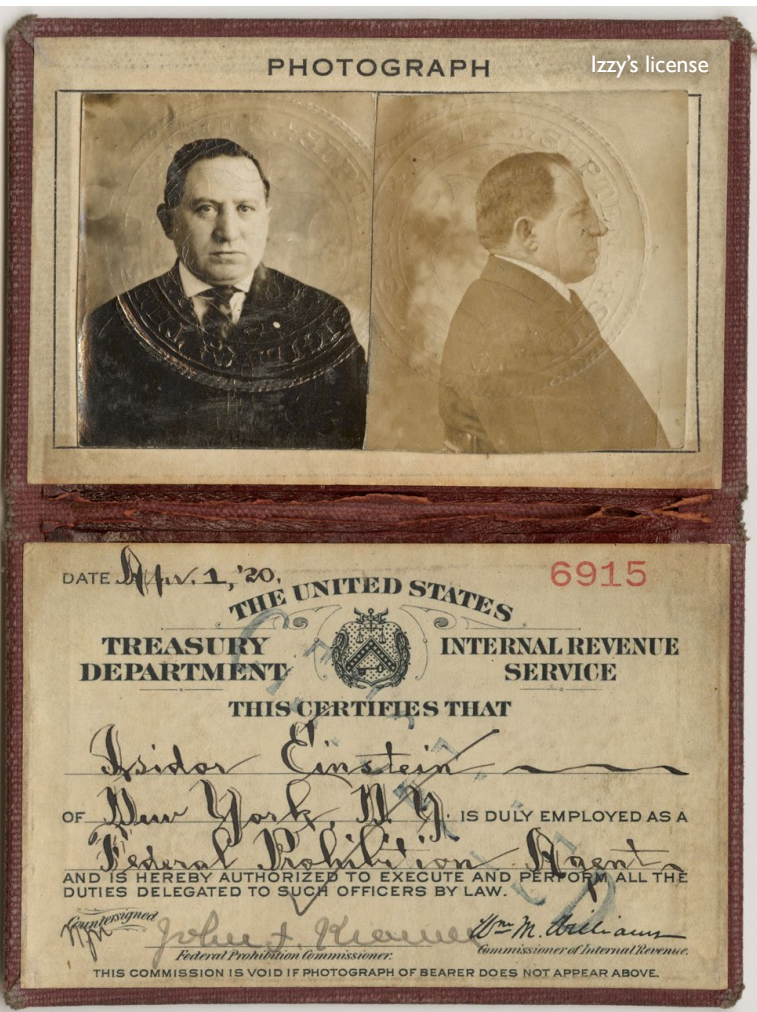 PHOTOGRAPH
Izzy's license
DATE Apr. 1, '20.
6915
THE UNITED STATES
TREASURY DEPARTMENT
INTERNAL REVENUE SERVICE
THIS CERTIFIES THAT
Isidor Einstein
OF New York, N.Y. IS DULY EMPLOYED AS A
Federal Prohibition Agent
AND IS HEREBY AUTHORIZED TO EXECUTE AND PERFORM ALL THE
DUTIES DELEGATED TO SUCH OFFICERS BY LAW.
Countersigned
John F. Kramer
Wm M. Williams
Federal Prohibition Commissioner.
Commissioner of Internal Revenue.
THIS COMMISSION IS VOID IF PHOTOGRAPH OF BEARER DOES NOT APPEAR ABOVE.